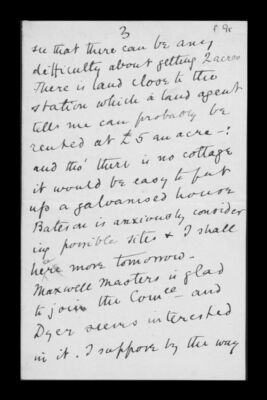 3
see that there can be any
difficulty about getting 2 acres
There is land close to the
station which a land agent
tells me can probably be
rented at £5 an acre -
and tho' there is no cottage
it would be easy to put
up a galvanised house
Bateson is anxiously consider
ing possible sites & I shall
hear more tomorrow -
Maxwell Masters is glad
to join the Comee - and
Dyer seems interested
in it. I suppose by the way